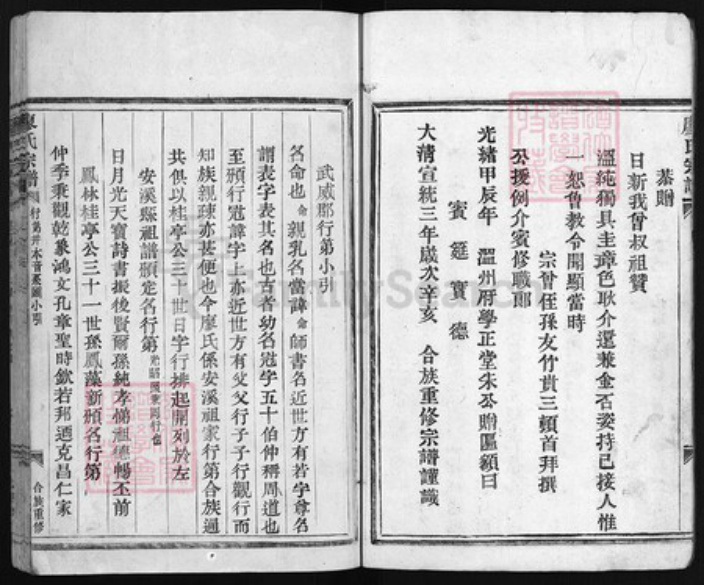 恭贈
日新我曾叔祖贊
溫純獨具圭璋色耿介還兼金石姿持己接人惟
一恕魯敎令開顯當時
宗曾侄孫友竹貴三頓首拜撰
公援例介賓修職郞
光緒甲辰年 溫州府學正堂朱公贈匾額曰
賓筵實德
大淸宣統三年歲次辛亥 合族重修宗譜謹識
武威郡行第小引
名命也命親乳名當諱命師書名近世方有若字尊名
謂表字表其名也古者幼名冠字五十伯仲稱周道也
至頒行冠諱字上亦近世方有父父行子子行觀行而
知族親疎亦甚便也今廖氏係安溪祖家行第合族通
共俱以桂亭公三十世日字行排起開列於左
安溪縣祖譜頒定名行第
日月光天寶詩書振後賢爾孫純孝悌祖德暢丕前
鳳林桂亭公三十一世孫鳳藻新頒名行第
仲季秉觀乾象鴻文孔章聖時欽若邦迺克昌仁家
廖氏宗譜
合族重修
FamilySearch